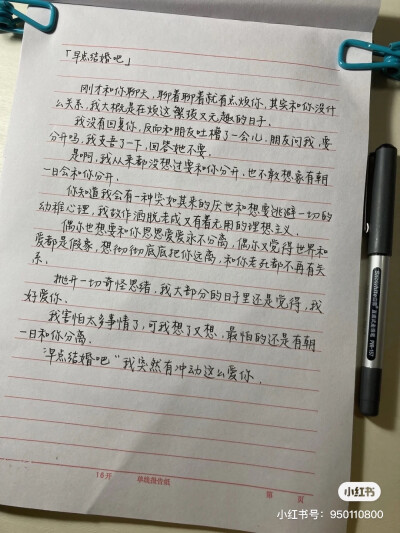 「早点结婚吧」
刚才和你聊天，聊着聊着就有点烦你，其实和你没什
么关系，我大概是在烦这繁琐又无趣的日子。
我没有回复你，反而和朋友吐槽了一会儿，朋友问我，要
分开吗，我支吾了一下，回答她不要。
是啊，我从来都没想过要和你分开，也不敢想象有朝
一日会和你分开。
你知道我会有一种突如其来的厌世和想要逃避一切的
幼稚心理，我故作洒脱老成又有着无用的理想主义。
偶尔也想要和你恩恩爱爱永不分离，偶尔又觉得世界和
爱都是假象，想彻彻底底把你远离，和你老死都不再有关
系。
抛开一切奇怪思绪，我大部分的日子里还是觉得，我
好爱你。
我害怕太多事情了，可我想了又想，最怕的还是有朝
一日和你分离。
"早点结婚吧"我突然有冲动这么爱你.
16开 单线报告纸 第 页
小红书
小红书号：950110800